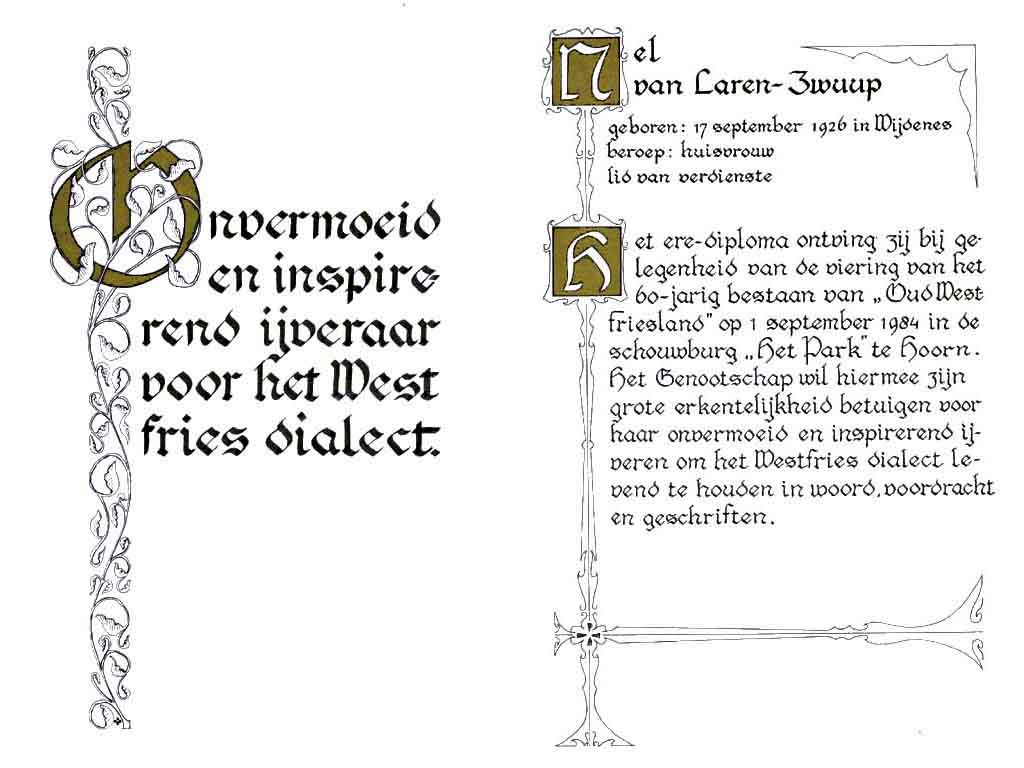 Onvermoeid
en inspire-
rend ijveraar
voor het West
fries dialect.
Nel
van Laren-Zwuup
geboren: 17 september 1926 in Wijdenes
beroep: huisvrouw
lid van verdienste
Het ere-diploma ontving zij bij ge-
legenheid van de viering van het
60-jarig bestaan van „Oud West
friesland" op 1 september 1984 in de
schouwburg „Het Park" te Hoorn.
Het Genootschap wil hiermee zijn
grote erkentelijkheid betuigen voor
haar onvermoeid en inspirerend ij-
veren om het Westfries dialect le-
vend te houden in woord, voordracht
en geschriften.